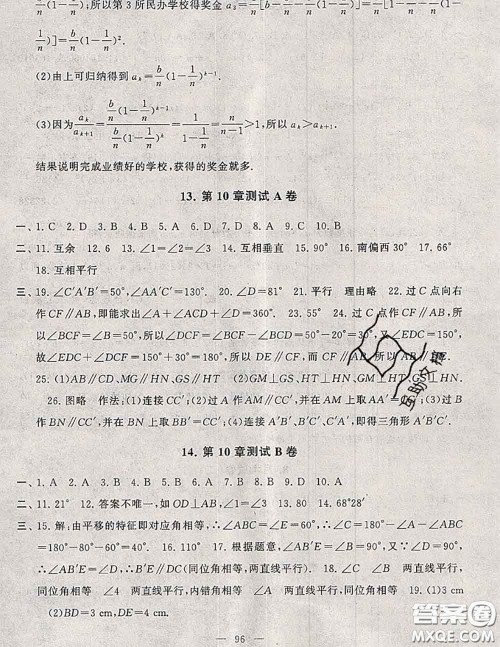 1/n)，所以第 3 所民办学校得奖金 a₃=1/n[b-b/n-1/n(1-1/n)b]=b/n[1-1/n-1/n(1-
1/n)]=b/n(1-1/n)².
(2)由上可归纳得到 aₖ=b/n(1-1/n)ᵏ⁻¹.
(3)因为 aₖ/aₖ₊₁=b/n(1-1/n)ᵏ⁻¹/b/n(1-1/n)ᵏ=1/(1-1/n)=n/(n-1)>1，所以 aₖ>aₖ₊₁.
结果说明完成业绩好的学校，获得的奖金就多.
13. 第 10 章测试 A 卷
一、1. C 2. D 3. B 4. B 5. A 6. D 7. B 8. A 9. C 10. A
二、11. 互余 12. 6 13. ∠1=∠2=∠3 14. 互相垂直 15. 90° 16. 南偏西 30° 17. 66°
18. 互相平行
三、19. ∠C′A′B′=50°，∠AA′C′=130°. 20. 60° 21. 平行 理由略 22. 过 C 点向右
作 CF∥AB，即能求出∠A+∠ACD+∠D=360°. 23. 55° 24. 过 C 点作 CF∥AB，所
以∠BCF=∠BC-∠DCF=80°-50°=30°，又∠EDC=150°，
故∠EDC+∠DCF=150°+30°=180°，所以 DE∥CF，而 CF∥AB，所以 AB∥DE.
25. (1)AB∥CD，MG∥HN，GS∥HT (2)GM⊥GS，HN⊥HT，GM⊥HT，GS⊥HN.
26. 图略 作法：(1)连接 CC′；(2)过 A 作 AM∥CC′，并在 AM 上取 AA′=CC′；(3)过 B 作
BN∥CC′，并在 BN 上取 BB′=CC′；(4)连接 A′B′，B′C′，A′C′，即得三角形 A′B′C′.
14. 第 10 章测试 B 卷
一、1. A 2. A 3. D 4. B 5. D 6. B 7. C 8. B 9. C 10. B
二、11. 21° 12. 答案不唯一，如 OD⊥AB，∠1+∠2=90° 13. 8 14. 68°28′
三、15. 解：由平移的特征即对应角相等，∴∠ABE=∠E=60°，∴∠C=180°-∠A-∠ABC
=180°-80°-60°=40°. 16. 110° 17. 根据题意，∠A=∠ABE，∠AB′E=∠A=90°，
∴∠AB′E=∠D，∴B′E∥DC(同位角相等，两直线平行). 18. ∠B ∠ 两直线平行，
同位角相等 ∠ ∠ 两直线平行，内错角相等 ∠ ∠ 两直线平行，同位角相等 19. (1)3 cm.
(2)BD=3 cm，DE=4 cm.
— 96 —
答案圈
MXQE.COM